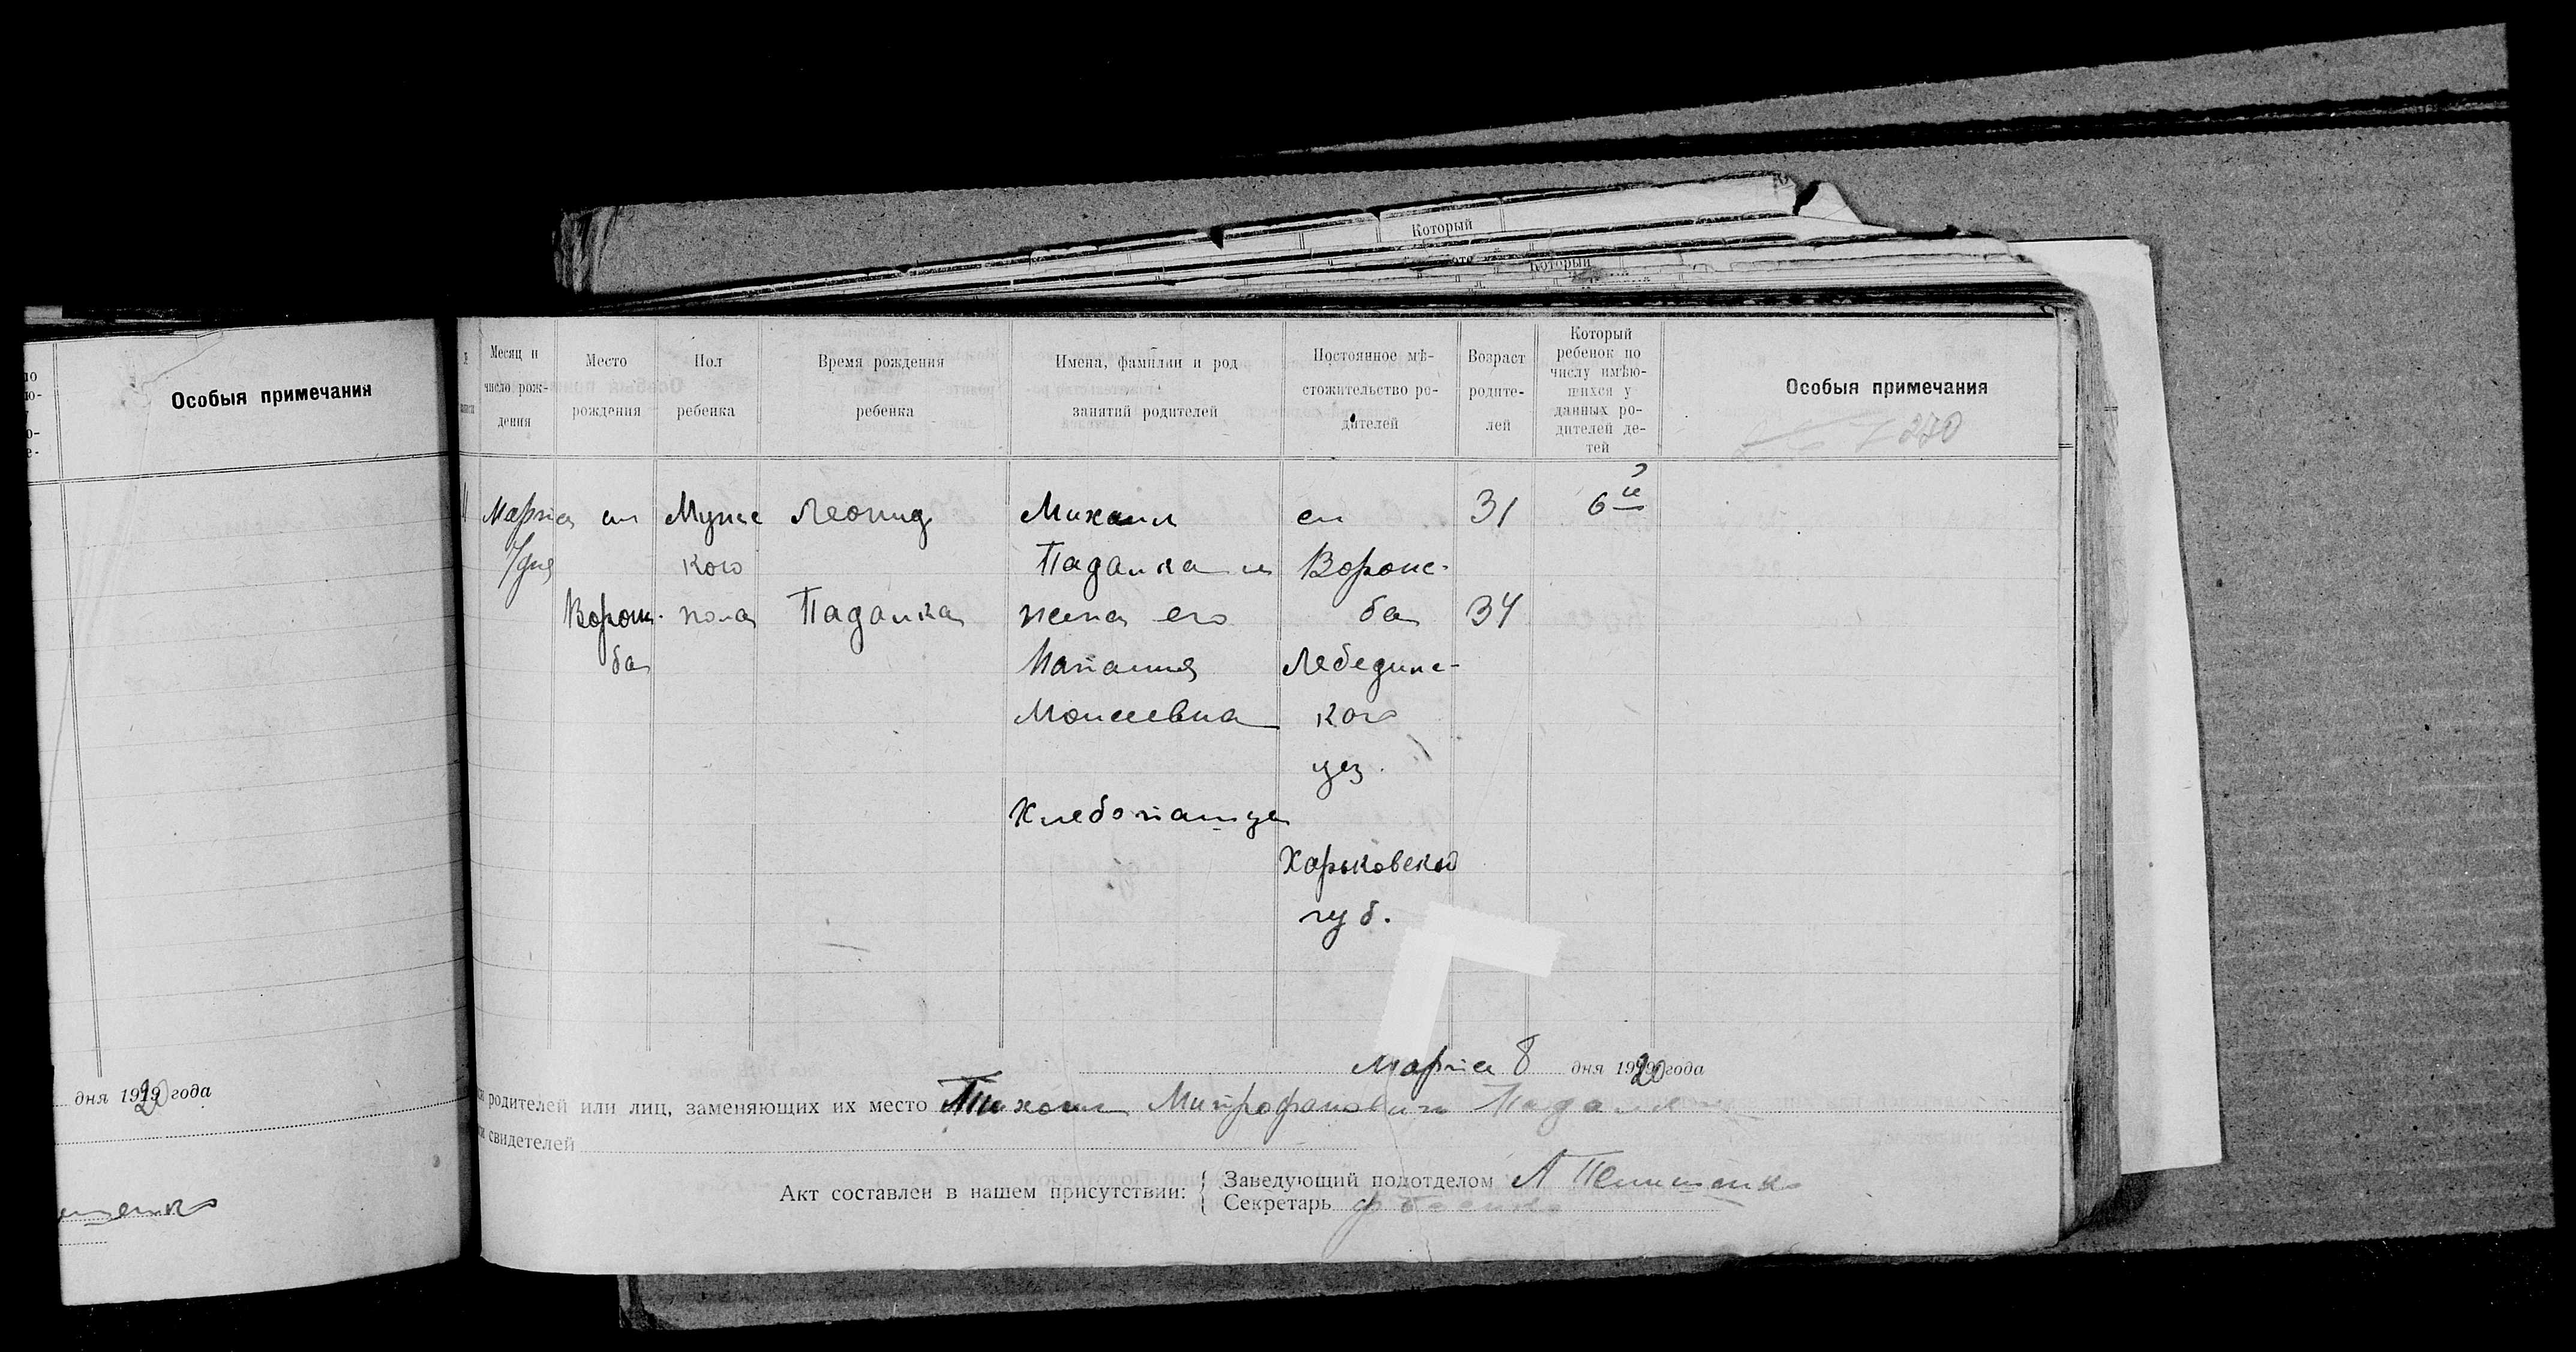 Который
Который
Особыя примечания
дня 1920 года
Месяц и число рождения
Место рождения
Пол ребенка
Время рождения ребенка
Имена, фамилии и род занятий родителей
Постоянное мѣстожительство родителей
Возраст родителей
Который ребенок по числу имѣющихся у данных родителей детей
Особыя примечания
270
Марта сл Мужс Леонид Михаил сл 31 6й
7 дня кого Падалка и Воронс-
Ворож- пола Падалка жена его ба 34
ба Наталия Лебединс-
Моисеевна кого
уез.
Хлебопашцы
Харьковской
губ.
Марта 8 дня 1920 года
родителей или лиц, заменяющих их место Михаил Митрофанович Падалка
свидетелей
Акт составлен в нашем присутствии:
Заведующий подотделом А
Секретарь